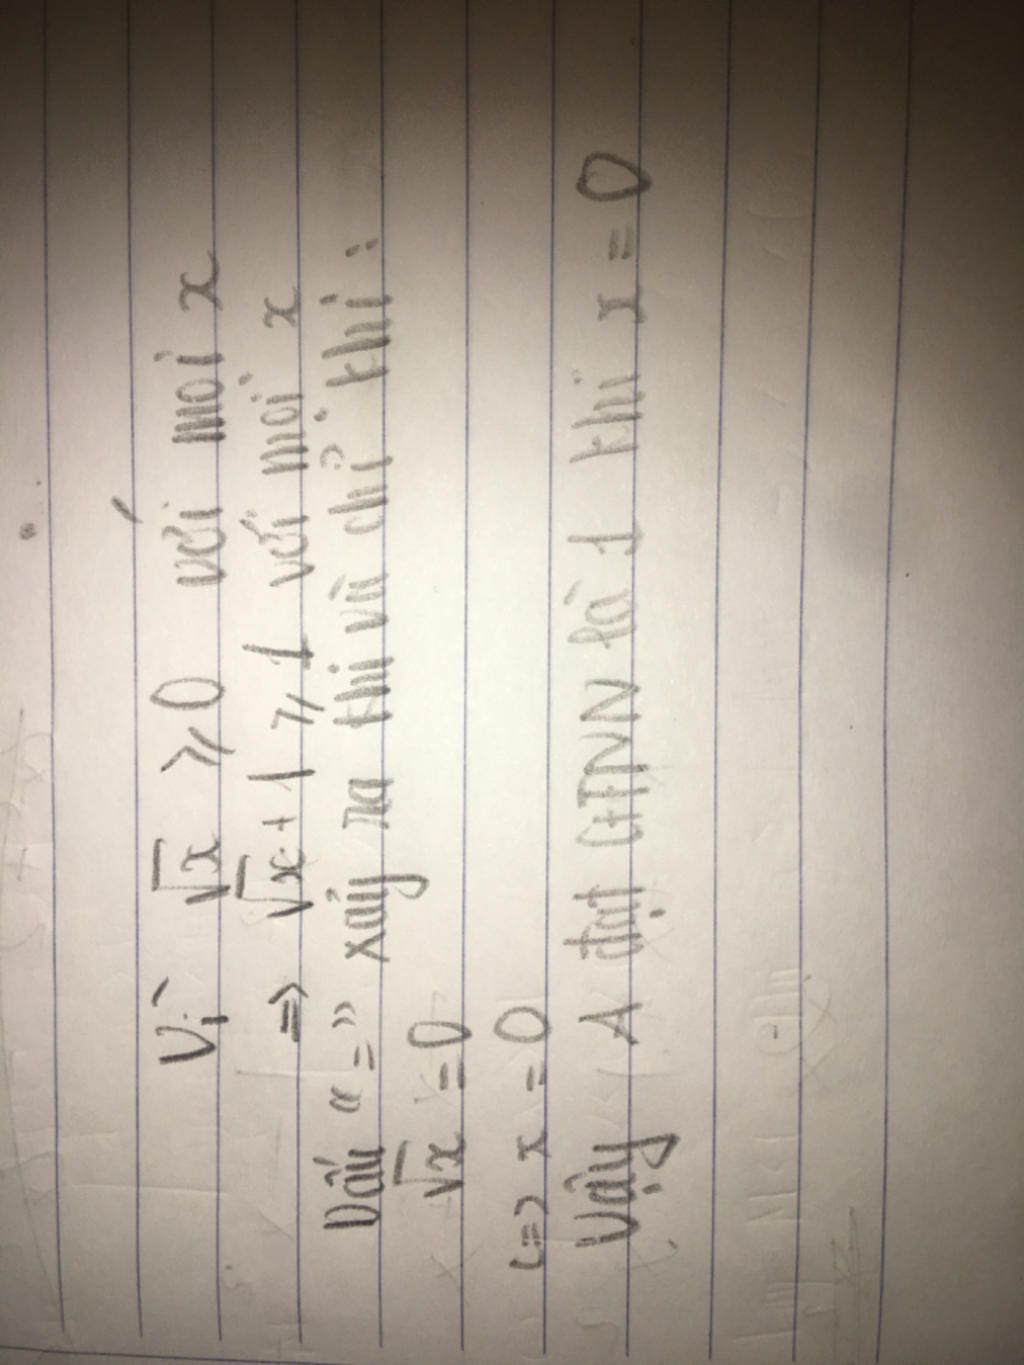 Vì √x ⩾ 0 với mọi x
=> √x + 1 ⩾ 1 với mọi x
Dấu "=" xảy ra khi và chỉ khi :
√x = 0
<=> x = 0
Vậy A đạt GTNN là 1 khi x = 0